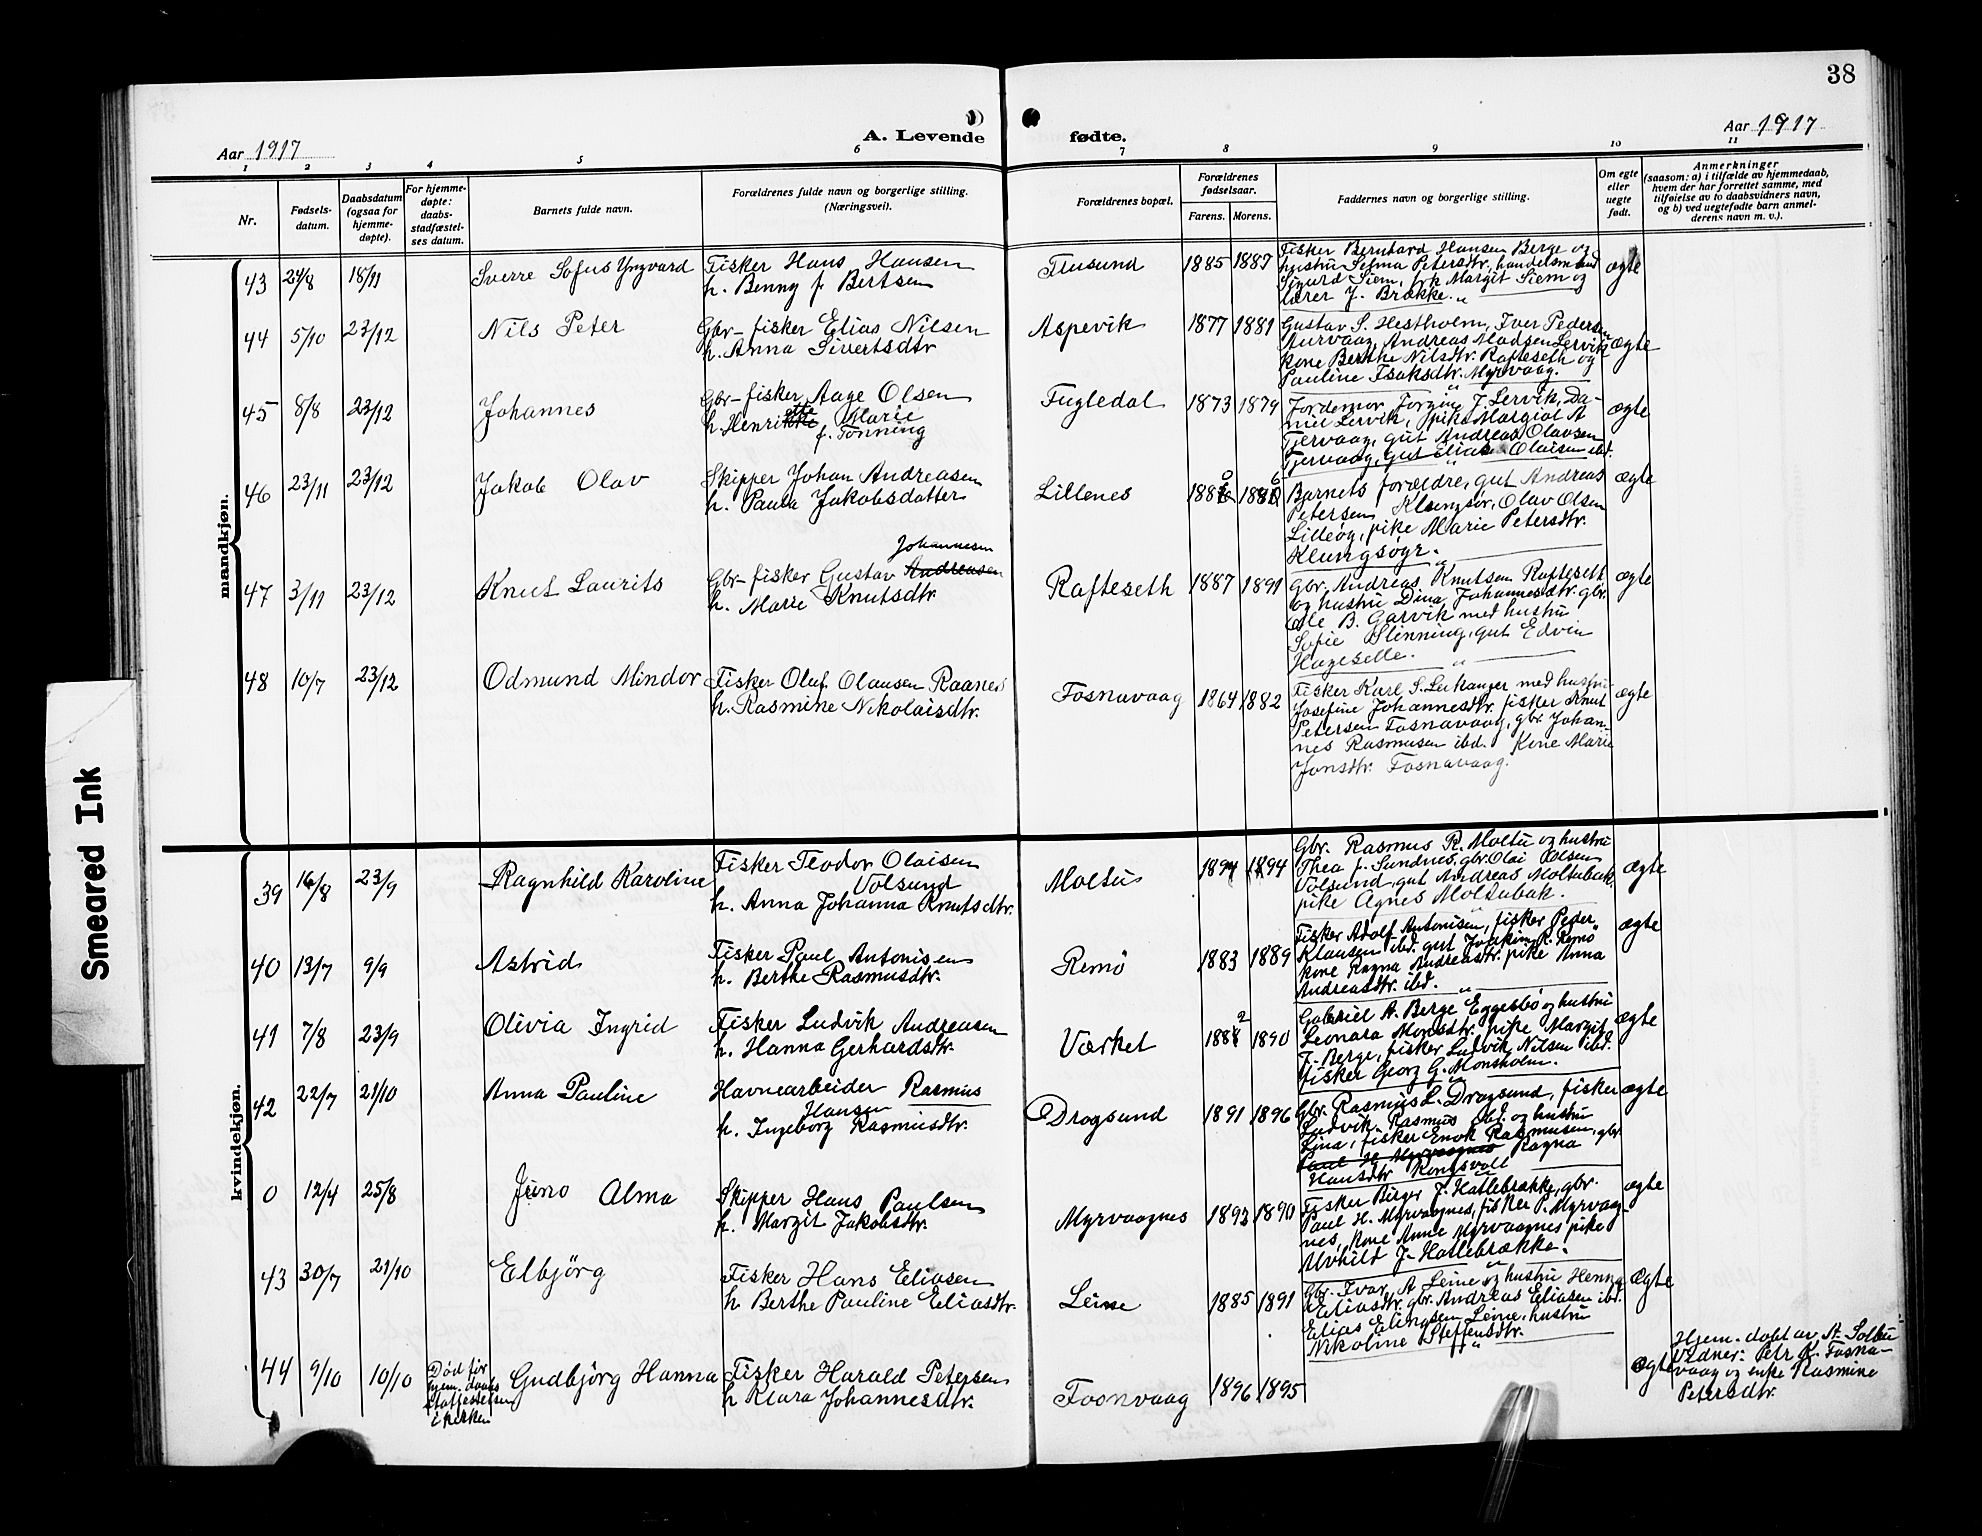 38
Aar 1917
A. Levende
fødte.
Aar 1917
1 2 3 4 5 6 7 8 9 10 11
Nr.
Fødsels-
datum.
Daabsdatum
(ogsaa for
hjemme-
døpte).
For hjemme-
døpte:
daabs-
stadfæstel-
ses datum.
Barnets fulde navn.
Forældrenes fulde navn og borgerlige stilling.
(Næringsvei).
Forældrenes bopæl.
Forældrenes
fødselsaar.
Farens. Morens.
Faddernes navn og borgerlige stilling.
Om egte
eller
uegte
født.
Anmerkninger
(saasom: a) i tilfælde av hjemmedaab,
hvem der har forrettet samme, med
tilføielse av to daabsvidners navn,
og b) ved uegtefødte barn anmel-
derens navn m. v.).
mandkjøn.
43 24/8 18/11 Sverre Sofus Yngvard
Fisker Hans Hansen
h. Benny f. Bertsen
Flusund 1885 1887
Fisker Bernhard Hansen Berge og
hustru Selma Petersdtr, handelsmand
Sigurd Siem, frk Margit Siem og
lærer J. Brække.
ægte
44 5/10 23/12 Nils Peter
Gbr- fisker Elias Nilsen
h. Anna Sivertsdtr
Aspevik 1877 1881
Gustav S. Hestholm, Iver Pedersen
Aurvaag, Andreas Madsen Lervik
kone Berthe Nilsdtr. Rafteseth og
Pauline Isaksdtr. Myrvaag.
ægte
45 8/8 23/12 Johannes
Gbr- fisker Aage Olsen
h. Henrikke Marie
f. Tonning
Fugledal 1873 1879
Jordemor Jorgine J. Lervik, Da-
niel Lervik, pike Margiat A
Tjervaag, gut Andreas Olavsen
Tjervaag, gut Elias Olaisen ibd.
ægte
46 23/11 23/12 Jakob Olav
Skipper Johan Andreasen
h. Paula Jakobsdatter
Lillenes 1880 1886
Barnets forældre, gut Andreas
Petersen Klungsør, Olav Olsen
Lilleøy, pike Marie Petersdtr.
Klungsøyr.
ægte
47 3/11 23/12 Knut Laurits
Johannesen
Gbr- fisker Gustav Andreasen
h. Marie Knutsdtr.
Rafteseth 1887 1891
Gbr. Andreas Knutsen Rafteseth
og hustru Dina Johannesdtr. gbr.
Ole B. Garvik med hustru
Sofie Slinning, gut Edvin
Hageselle.
ægte
48 10/7 23/12 Odmund Mindor
Fisker Oluf Olausen Raanes
h. Rasmine Nikolaisdtr.
Fosnavaag 1864 1882
Fisker Karl S. Leikanger med hustru
Josefine Johannesdtr. fisker Knut
Petersen Fosnavaag, gbr. Johan-
nes Rasmusen ibd. Kone Marie
Jonsdtr. Fosnavaag.
ægte
kvindekjøn.
39 16/8 23/9 Ragnhild Karoline
Fisker Teodor Olaisen
Volsund
h. Anna Johanna Knutsdtr.
Moltu 1894 1894
Gbr. Rasmus R. Moltu og hustru
Thea f. Sundnes, gbr. Olai Olsen
Volsund, gut Andreas Moltubak,
pike Agnes Moltubak.
ægte
40 13/7 9/9 Astrid
Fisker Paul Antonisen
h. Berthe Rasmusdtr.
Remö 1883 1889
Fisker Adolf Antonisen, fisker Peder
Klausen ibd. gut Joakim R. Remö
kone Ragna Andreasdtr. pike Anna
Andreasdtr. ibd.
ægte
41 7/8 23/9 Olivia Ingrid
Fisker Ludvik Andreasen
h. Hanna Gerhardsdtr.
Værket 1882 1890
Gabriel A. Berge Eggesbö og hustru
Leonara Monsdtr. pike Margit
J. Berge, fisker Ludvik Nilsen ibd.
fisker Georg G. Monsholm.
ægte
42 22/7 21/10 Anna Pauline
Havnearbeider Rasmus
Hansen
h. Ingeborg Rasmusdtr.
Dragsund 1891 1896
Gbr. Rasmus L. Dragsund, fisker
Ludvik Rasmus ibd. og hustru
Lina, fisker Enok Rasmusen, gbr.
Paul H. Myrvaagnes Ragna
Hansdtr Kongsvoll
ægte
0 12/4 25/8 Juno Alma
Skipper Hans Paulsen
h. Margit Jakobsdtr.
Myrvaagnes 1892 1890
Fisker Birger J. Hatlebrække, gbr.
Paul H. Myrvaagnes, fisker P. Myrvaag-
nes, kone Anne Myrvaagnes pike
Alvhild J. Hatlebrække.
ægte
43 30/7 21/10 Elbjörg
Fisker Hans Eliasen
h. Berthe Pauline Eliasdtr.
Leine 1885 1891
Gbr. Ivar A Leine og hustru Henny
Eliasdtr. gbr. Andreas Eliasen ibd.
Elias Elingsen Leine, hustru
Nikoline Steffensdtr.
Ægte
44 9/10 10/10
Död för
hjem. daabs
staffestelsen
i kirken
Gudbjörg Hanna
Fisker Harald Petersen
h Klara Johannesdtr.
Fosnvaag 1896 1895
ægte
Hjem. döbt av A. Solbu
Vidner: Petr K. Fosna-
vaag og enke Rasmine
Petersdtr.
Smeared Ink